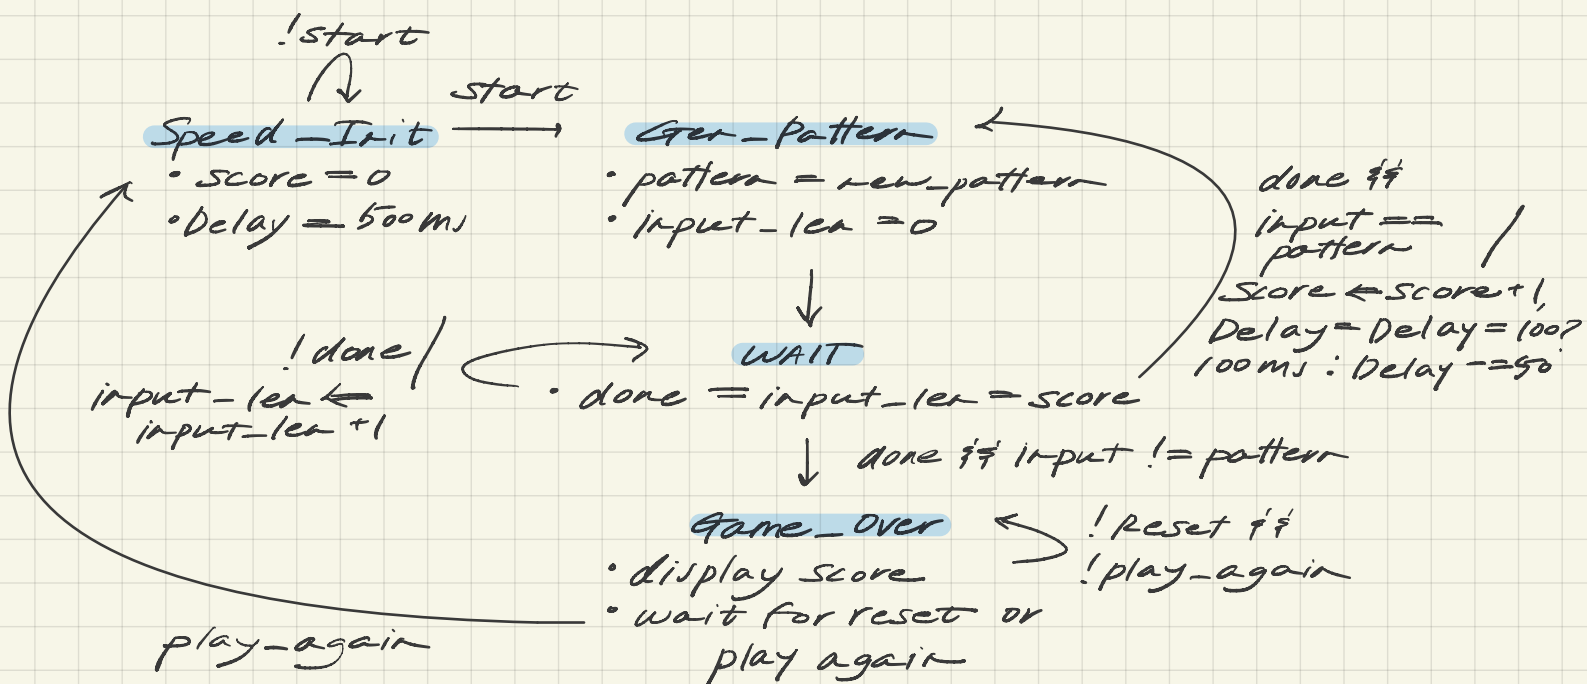 !start
start
Speed_Init
• score = 0
• Delay = 500ms
Gen_Pattern
• pattern = new_pattern
• input_len = 0
done &&
input ==
pattern /
Score ← score+1,
Delay = Delay = 100?
100ms : Delay -= 50
!done /
input_len ⇐
input_len +1
WAIT
• done = input_len = score
done && input != pattern
Game_Over
• display score
• wait for reset or
play again
!Reset &&
!play_again
play_again